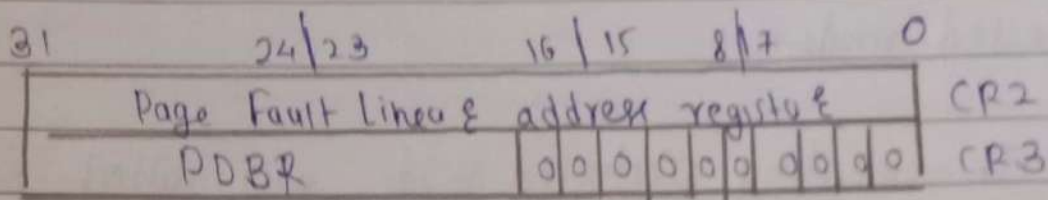 31 24 | 23 16 | 15 8 | 7 0
Page Fault Linear address register CR2
PDBR 0 0 0 0 0 0 0 0 0 0 CR3